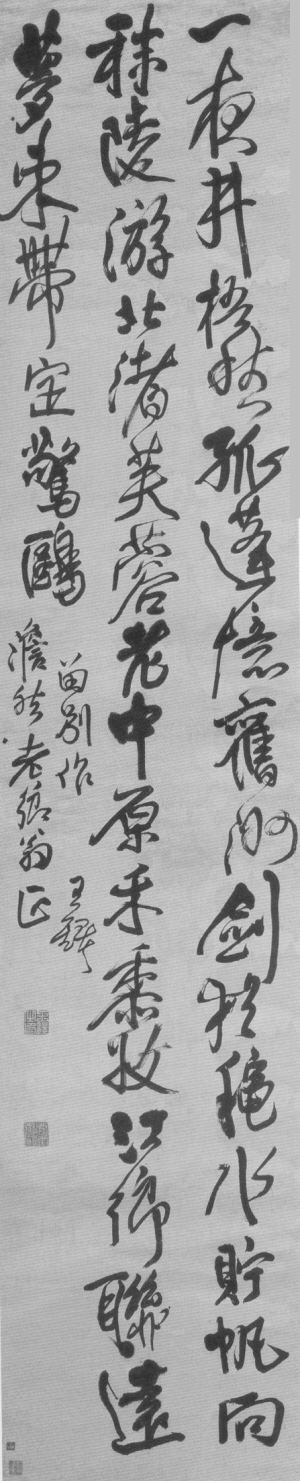 一夜井梧秋孤蓬憶舊洲劍於穐水貯帆向
秣陵游北渚芙蓉老中原禾黍收江鄉聯遠
夢束帶定驚鷗
留別作 王鐸
澹然老鄉翁正